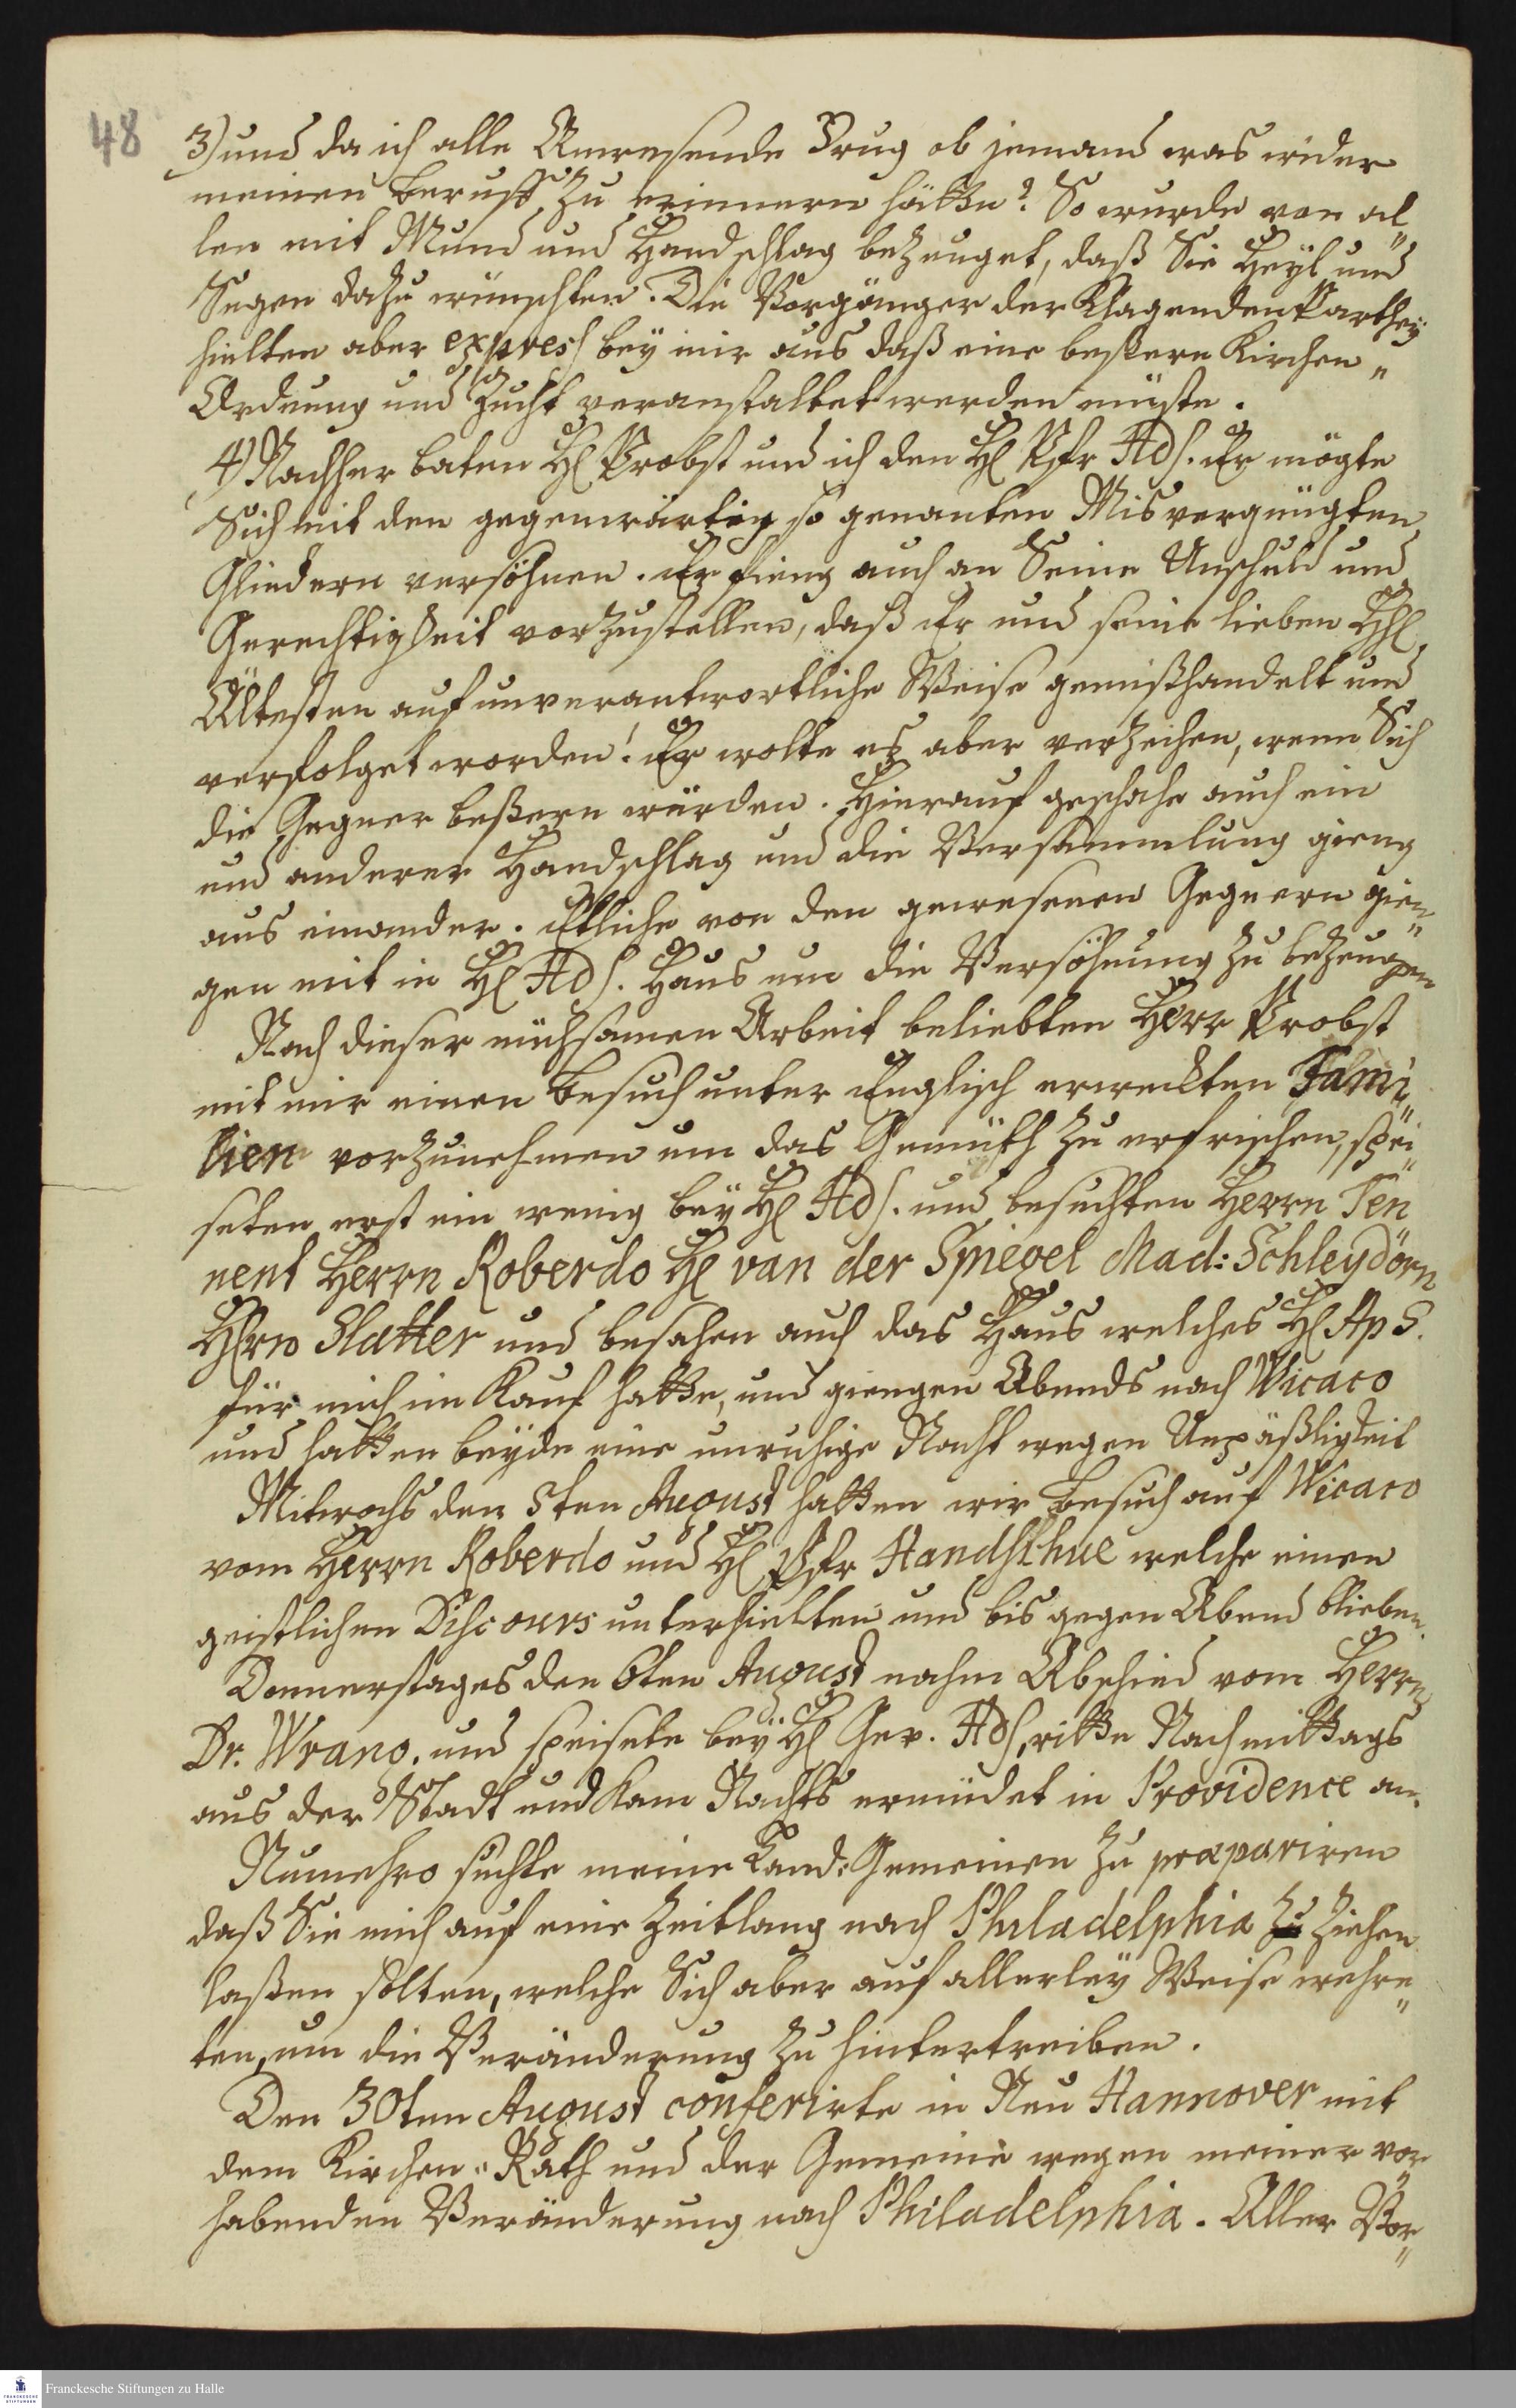 48
3) und da ich alle Anwesende Frug ob jemand was wider
meinen Beruff zu erinnern hätte? So wurde von al„
len mit Mund und Handschlag bezeuget, daß Sie Heyl und
Segen dazu wünschten. Die Vorgänger der Klagenden Parthey
hielten aber express bey mir aus daß eine beßere Kirchen„
Ordnung und Zucht veranstaltet werden müste.
4) Nachher baten H Probst und ich den H Pfr Hds. Er mögte
Sich mit den gegenwärtig so genanten Misvergnügten
Gliedern versöhnen. Er fieng auch an Seine Unschuld und
Gerechtigkeit vorzustellen, daß Er und seine lieben HH
Ältesten auf unverantwortliche Weise gemißhandelt und
verfolget worden! Er wolte es aber verzeihen, wenn Sich
die Gegner beßern würden. Hierauf geschahe auch ein
und anderer Handschlag und die Versammlung gieng
aus einander. Etliche von den gewesenen Gegnern gien„
gen mit in H Hds. Haus um die Versöhnung zu bezeugen
Nach dieser mühsamen Arbeit beliebten Herr Probst
mit mir einen Besuch unter Englisch erweckten Fami„
lien vorzunehmen um das Gemüth zu erfrischen, spei„
seten erst ein wenig bey H Hds. und besuchten Herrn Ten
nent Herrn Roberdo H van der Spiegel Mad: Schleydörn
Herrn Slatter und besahen auch das Haus welches H Ap S.
für mich im Kauf hatte, und giengen Abends nach Wicaco
und hatten beyde eine unruhige Nacht wegen Unpäßligkeit
Mitwochs den 5ten August hatten wir Besuch auf Wicaco
vom Herrn Roberdo und H Pfr Handschue welche einen
geistlichen Discours unterhielten und bis gegen Abend blieben.
Donnerstages den 6ten August nahm Abschied vom Herrn
Dr. Wrang. und speisete bey H Gev. Hds, ritte Nachmittags
aus der Stadt und kam Nachts ermüdet in Providence an.
Nunmehro suchte meine Land: Gemeinen zu præpariren
daß Sie mich auf eine Zeitlang nach Philadelphia ziehen
laßen solten, welche Sich aber auf allerley Weise wehre„
ten, um die Veränderung zu hintertreiben.
Den 30ten August conferirte in Neu Hannover mit
dem Kirchen„Rath und der Gemeine wegen meiner vor„
habenden Veränderung nach Philadelphia. Aller Vor„
Franckesche Stiftungen zu Halle